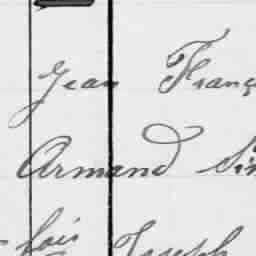 Jean Franç
Armand Sin
fois Joseph